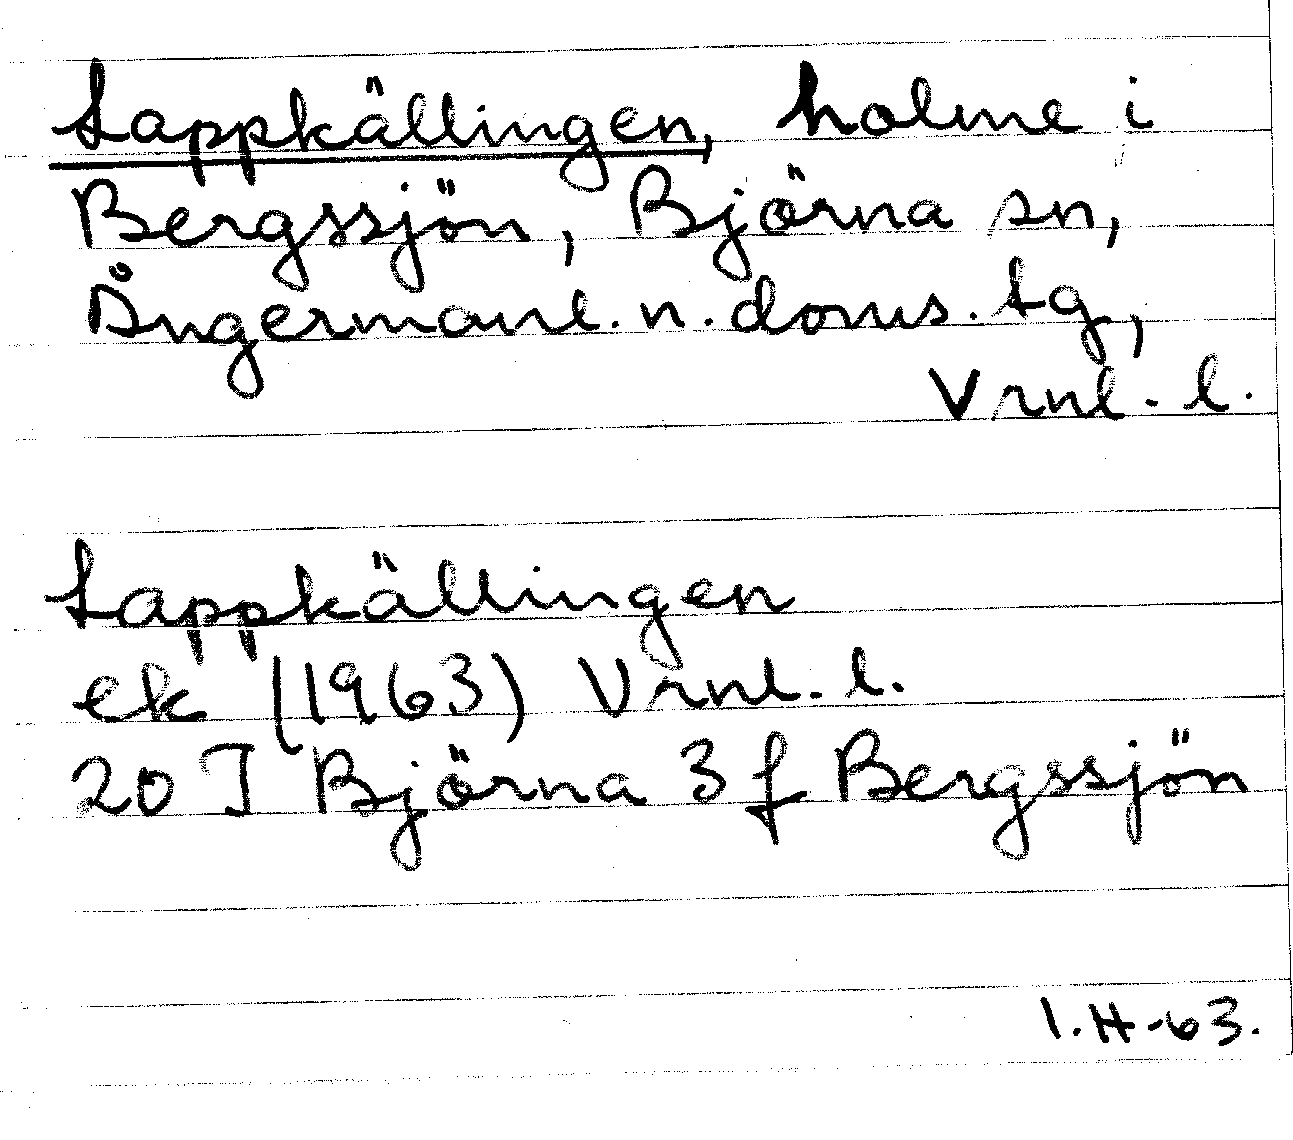 Lappkällingen, holme i
Bergssjön, Björna sn,
Ångermanl. n. doms. tg,
Vrnl. l.
Lappkällingen
ek (1963) Vrnl. l.
20 I Björna 3 f Bergssjön
I.H-63.